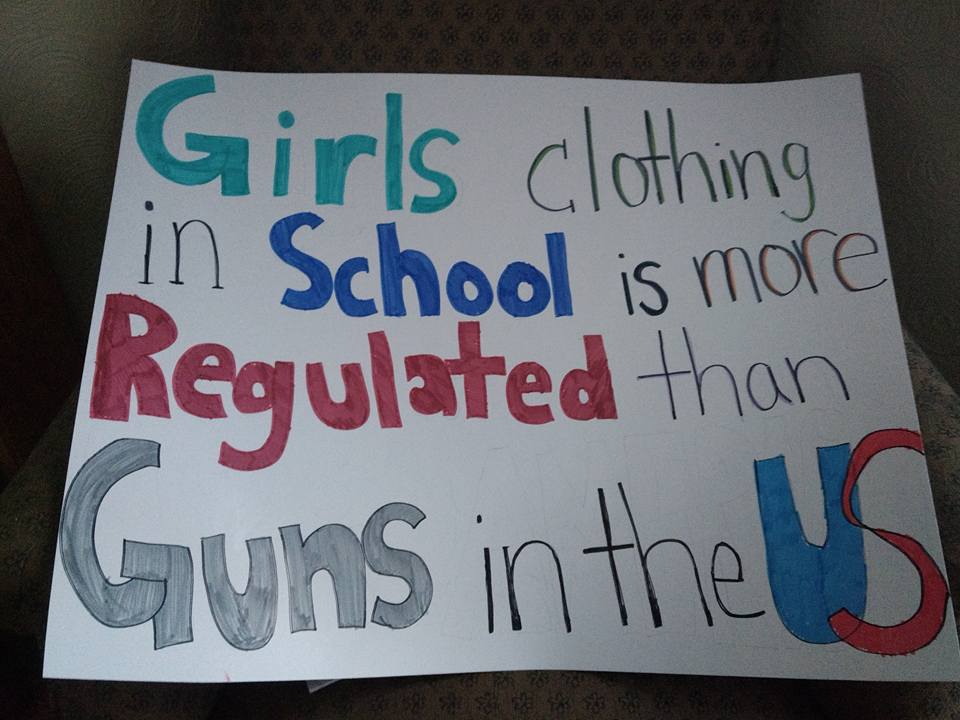 Girls clothing
in School is more
Regulated than
Guns in the US